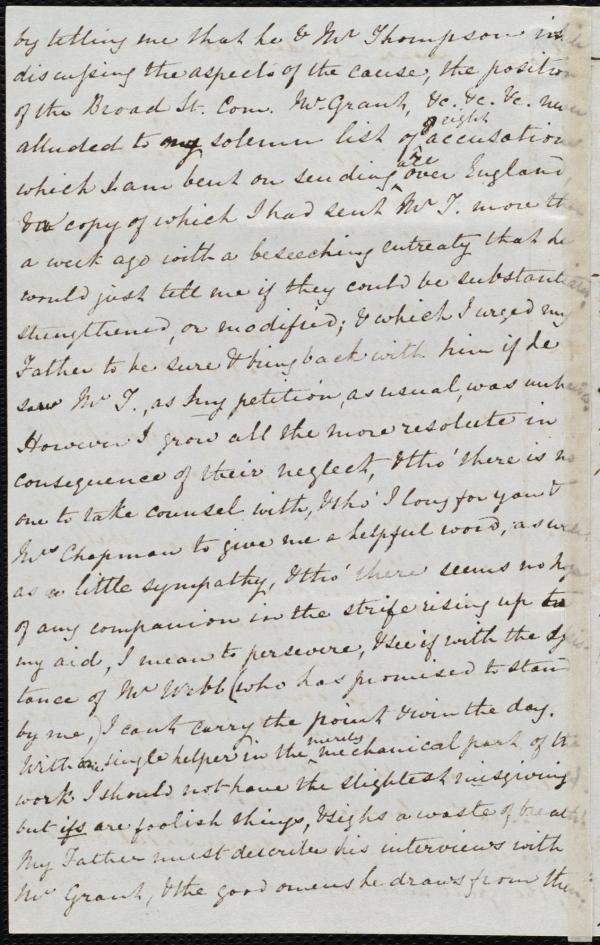 by telling me that he & Mr Thompson in
discussing the aspects of the cause, the position
of the Broad St. Com. Mr Grant, &c. &c. &c. never
alluded to my solemn list of eight accusations
which I am bent on sending are over England,
& a copy of which I had sent Mr T. more than
a week ago with a beseeching entreaty that he
would just tell me if they could be substantiated,
strengthened, or modified; & which I urged my
Father to be sure & bring back with him if he
saw Mr T., as my petition, as usual, was
However I grow all the more resolute in
consequence of their neglect, & tho' there is no
one to take counsel with, & tho' I long for you &
Mrs Chapman to give me a helpful word, as well
as a little sympathy, & tho' there seems no hope
of any companion in the strife rising up to
my aid, I mean to persevere, & see if with the
tance of Mr Webb (who has promised to stand
by me,) I cant carry the point & win the day.
With one single helper in the merely mechanical part of the
work I should not have the slightest misgiving
but ifs are foolish things, & sighs a waste of breath.
My Father must describe his interviews with
Mr Grant, & the good omens he draws from them.